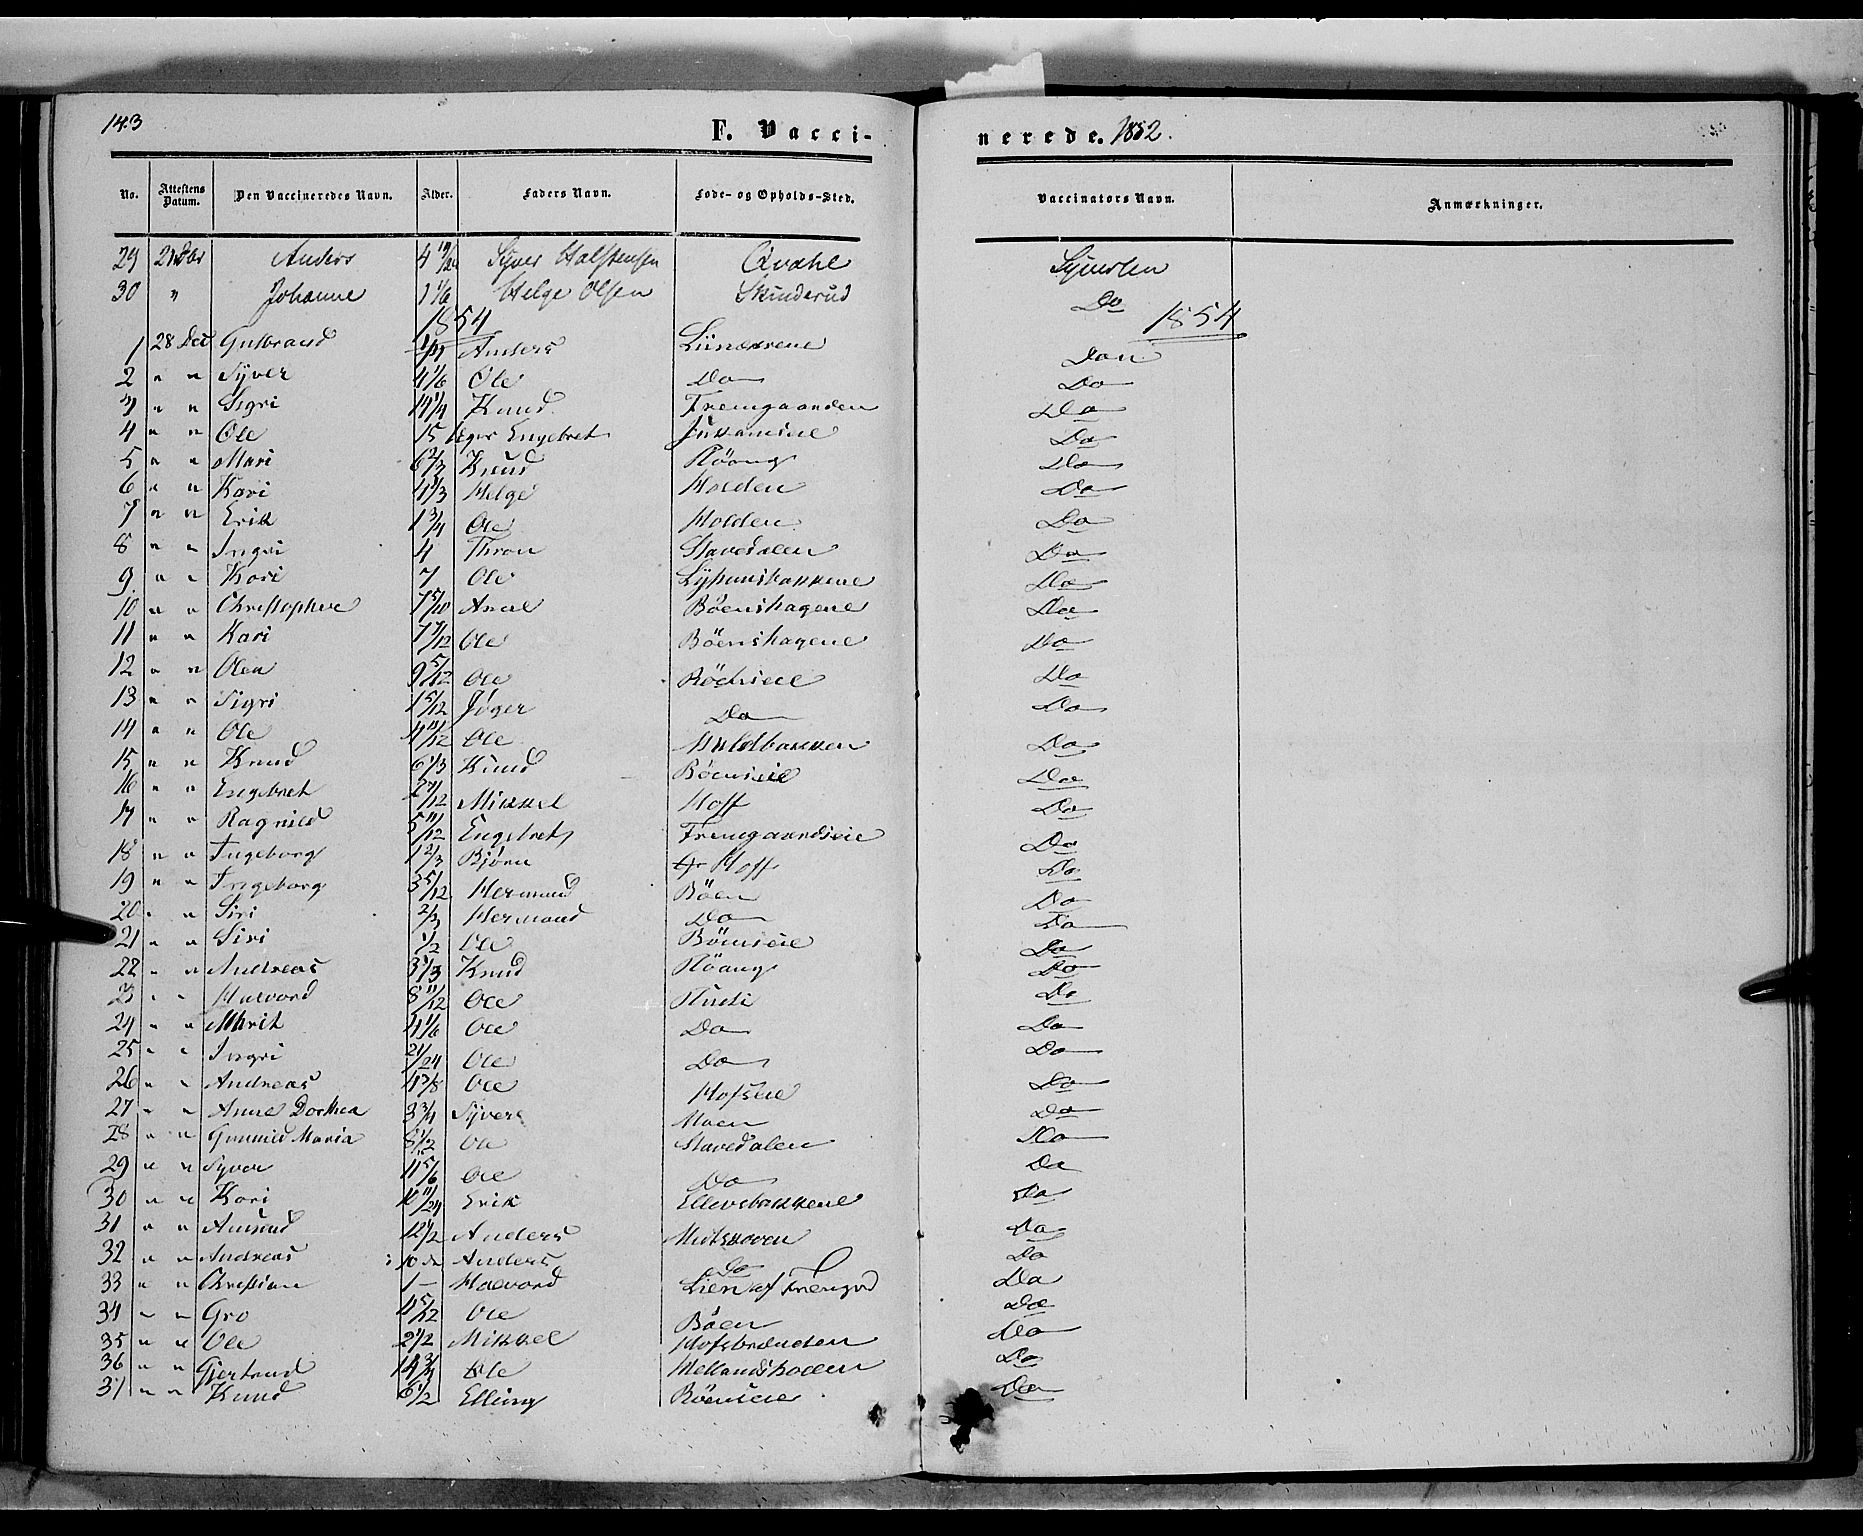 143
F. Vacci-nerede. 1852.
No. Attestens Datum. Den Vaccineredes Navn. Alder. Faders Navn. Føde- og Opholds-Sted. Vaccinators Navn. Anmærkninger.
29 21 Dbr Anders 4 Syver Halstensen Qvale
30 " Johanne 1 1/6 Helge Olsen Skinderud Do
1854 1854
1 28 Dec Gulbrand Anders
2 " " Syver 4 1/6 Ole Do Do
3 " " Sigri 14 1/4 Knud Fremgaarden Do
4 " " Ole 15 Engebret Do
5 " " Mari 6 2/3 Knud Røang Do
6 " " Kari 4 1/3 Helge Holden Do
7 " " Erik 1 3/4 Ole Holden Do
8 " " Ingri 4 Thron Stavedalen Do
9 " " Kari 7 Ole Do
10 " " Christopher Arne Bøenshagene Do
11 " " Kari 7 7/12 Ole Bøenshagene Do
12 " " Olea 9 5/12 Ole Do
13 " " Sigri 1 5/12 Do Do
14 " " Ole 4 11/12 Ole Do
15 " " Knud 6 1/3 Knud Bøenseie Do
16 " " Engebret Mikkel Hoff Do
17 " " Ragnild 5 11/12 Engebret Fremgaardseie Do
18 " " Ingeborg 1 2/3 Bjørn Hoff Do
19 " " Ingeborg 3 5/12 Hermand Bøen Do
20 " " Siri 2/3 Hermand Do Do
21 " " Siri 1/2 Ole Bøenseie Do
22 " " Andreas 3 1/3 Knud Røang Do
23 " " Halvord 8 11/12 Ole Do
24 " " Marit 4 1/6 Ole Do Do
25 " " Ingri 21/24 Ole Do Do
26 " " Andreas Ole Hofseie Do
27 " " Anne Dorthea 3 3/4 Syver Moen Do
28 " " Gunnild Maria 8 1/2 Ole Stavedalen Do
29 " " Syver Ole Do Do
30 " " Kari 10 11/24 Erik Ellevsbakkene Do
31 " " Amund 12 1/2 Anders Do
32 " " Andreas 10 Anders Do Do
33 " " Christian 1 - Halvord Lien af Do
34 " " Gro 4 5/12 Ole Bøen Do
35 " " Ole 2 1/2 Mikkel Hofsbraaten Do
36 " " Gjertrud 14 3/4 Ole Do
37 " " Knud 6 1/2 Elling Bøenseie Do